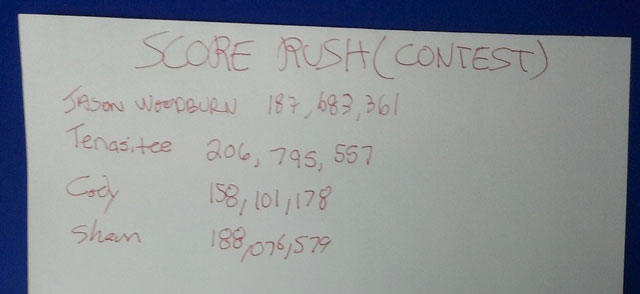 SCORE RUSH (CONTEST)
JASON WOODBURN 187,683,361
Tenasitee 206,795,557
Cody 158,101,178
Shawn 188,076,579